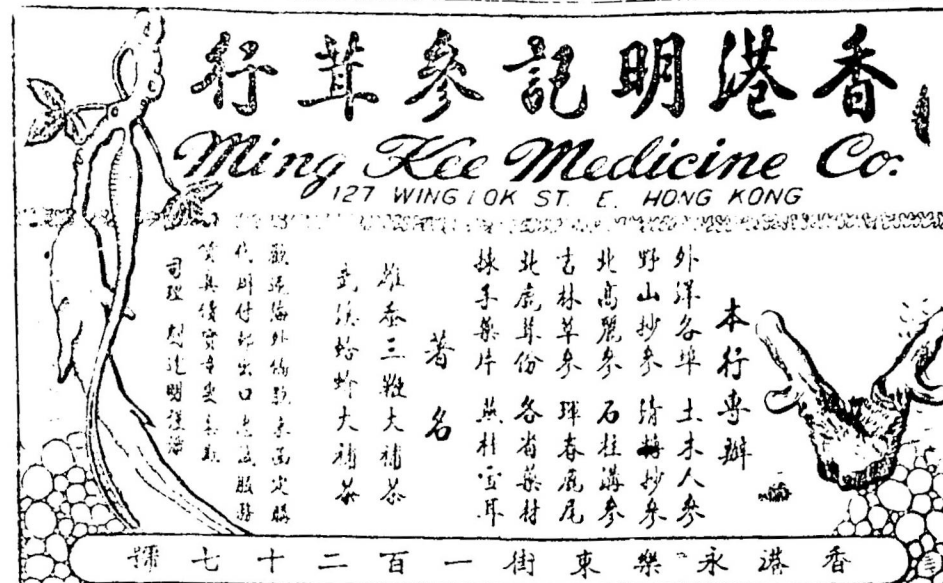 香港明記參茸行
Ming Kee Medicine Co.
127 WING LOK ST. E. HONG KONG
本行專辦
外洋各埠 土木人參
野山抄參 抄參
北高麗參 石柱溝參
吉林草參 琿春鹿尾
北鹿茸份 各省藥材
揀手藥片 燕桂雪耳
著名
三鞭大補
蛤蚧大補
歡迎海外僑胞來函定購
出口
司理
香港永樂東街一百二十七號